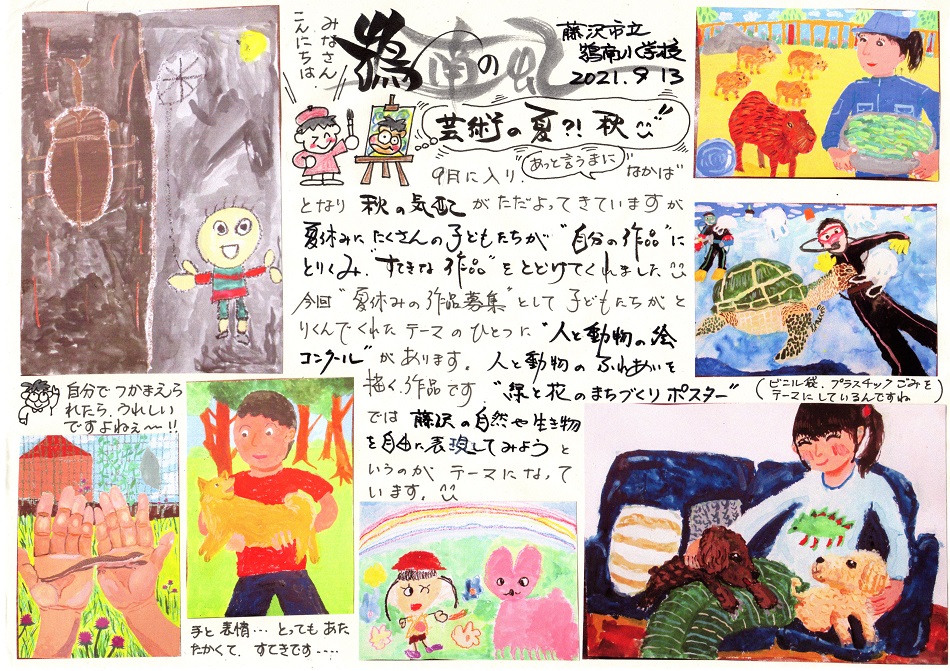 みなさん
こんにちは
鵠南の虹
藤沢市立
鵠南小学校
2021.9 13
芸術の夏?! 秋
9月に入り、あっと言うまに"なかば"
となり 秋の気配 がただよってきていますが
夏休みにたくさんの子どもたちが "自分の作品" に
とりくみ、"すてきな作品" を とどけてくれました
今回 "夏休みの作品募集" として 子どもたちがと
りくんでくれた テーマのひとつに "人と動物の絵
コンクール" が あります。 人と動物の ふれあいを
描く作品です "緑と花のまちづくりポスター"
では 藤沢の自然や生き物
を自由に表現してみよう と
いうのが テーマになって
います。
(ビニル袋、プラスチックごみを
テーマにしているんですね)
自分でつかまえら
れたら、うれしい
ですよねぇ〜!!
手と表情… とっても あた
たかくて、すてきです----